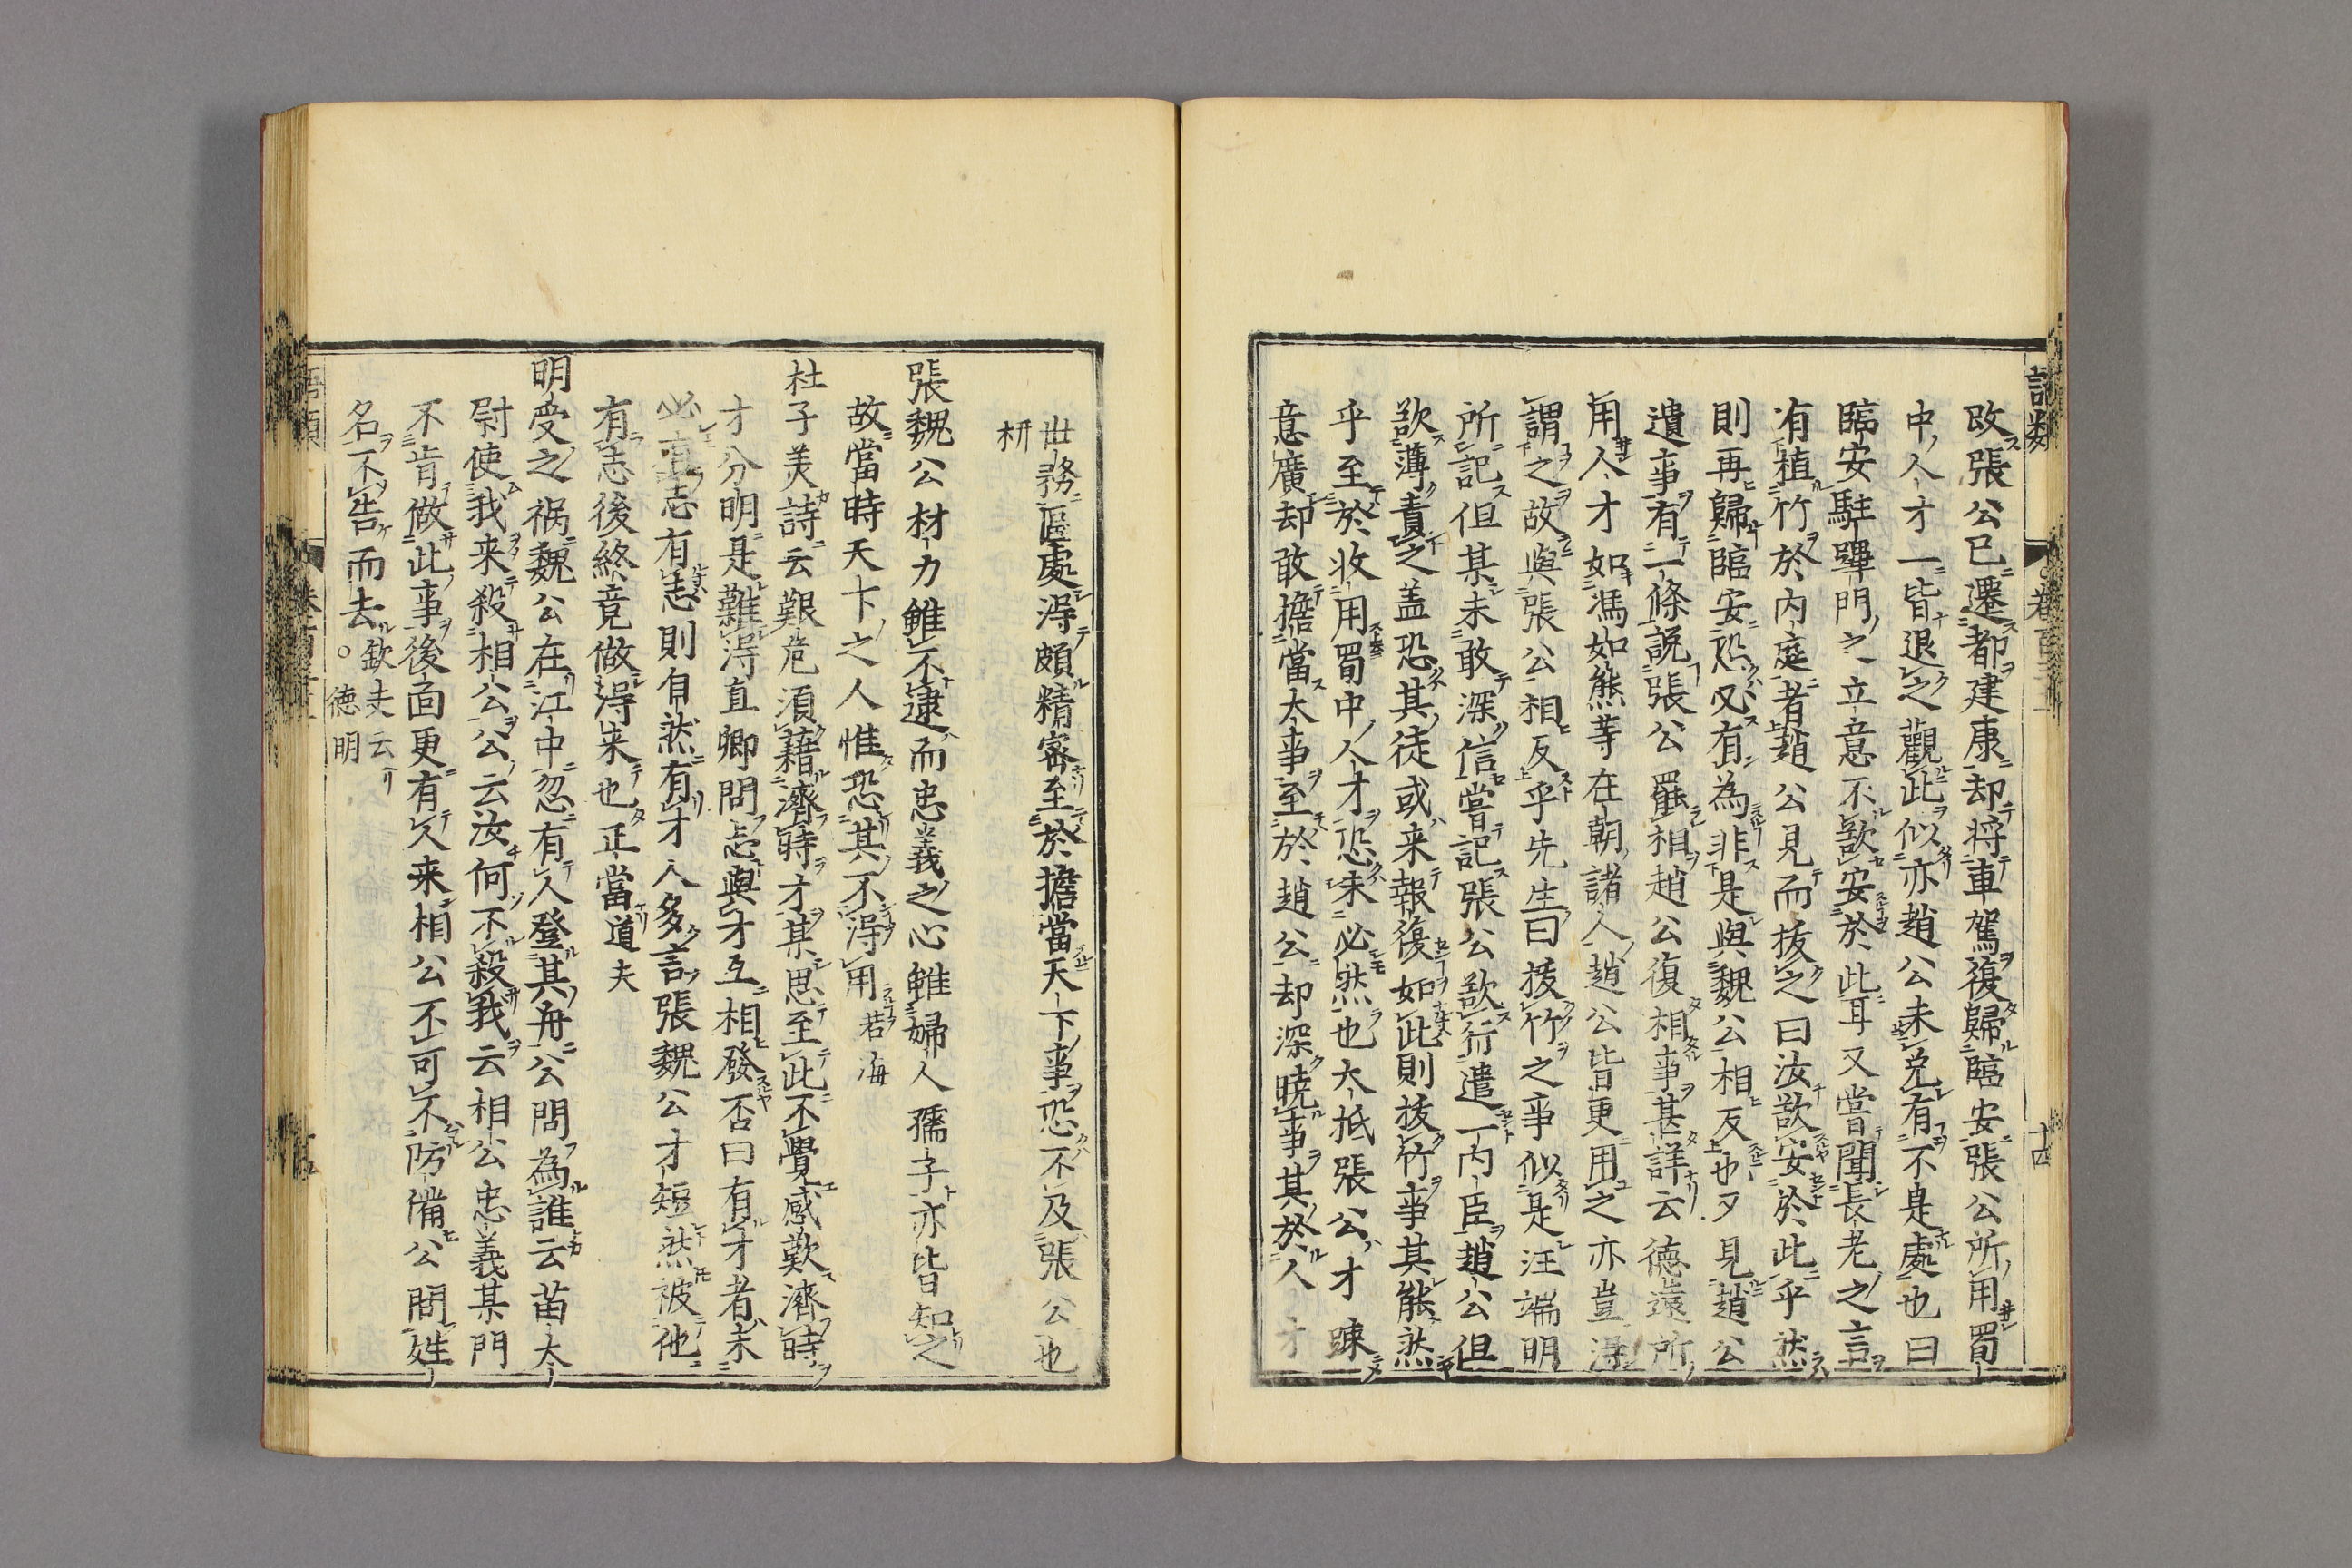 語類 卷百三十一 十四
改張公已遷都建康却将車駕復歸臨安張公所用蜀
中人才一皆退之觀此似亦趙公未免有不是處也曰
臨安駐蹕門之立意不欲安於此耳又嘗聞長老之言
有植竹於内庭者趙公見而拔之曰汝欲安於此乎然
則再歸臨安恐必有為非是與魏公相反也夕見趙公
遺事有一條説張公罷相趙公復相事甚詳云德遠所
用人才如馮如熊等在朝諸人趙公皆更用之亦豈得
謂之故與張公相反乎先生曰拔竹之事似是汪端明
所記但某未敢深信嘗記張公欲行遣一内臣趙公但
欲薄責之盖恐其徒或来報復如此則拔竹事其能然
乎至於收用蜀中人才恐未必然也大抵張公才踈
意廣却敢擔當大事至於趙公却深曉事其於人才
世務區處得頗精宻至於擔當天下事恐不及張公也
枅
張魏公材力雖不逮而忠義之心雖婦人孺子亦皆知之
故當時天下之人惟恐其不得用 若海
杜子美詩云艱危須藉濟時才某思至此不覺感歎濟時
才分明是難得直卿問志與才互相發否曰有才者未
必有志有志則自然有才人多言張魏公才短然被他
有志後終竟做得来也正當 道夫
明受之禍魏公在江中忽有人登其舟公問為誰云苗太
尉使我来殺相公公云汝何不殺我云相公忠義某門
不肯做此事後面更有人来相公不可不防備公問姓
名不告而去 欽夫云○德明
語類 卷百三十一